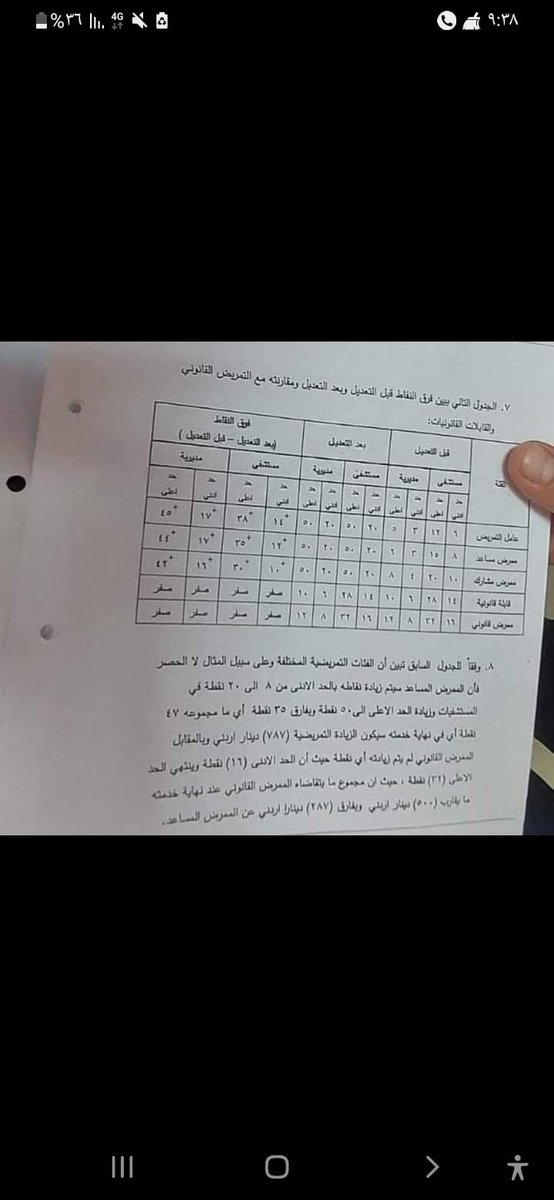 ٩:٣٨
4G
%٣٦
٧. الجدول التالي يبين فرق النقاط قبل التعديل وبعد التعديل ومقارنته مع التمريض القانوني
والقابلات القانونيات:
الفئة قبل التعديل بعد التعديل فرق النقاط
(بعد التعديل – قبل التعديل)
مستشفى مديرية مستشفى مديرية مستشفى مديرية
حد أدنى حد أعلى حد أدنى حد أعلى حد أدنى حد أعلى حد أدنى حد أعلى حد أدنى حد أعلى حد أدنى حد أعلى
عامل التمريض ٦ ١٢ ٣ ٥ ٢٠ ٥٠ ٢٠ ٥٠ +١٤ +٣٨ +١٧ +٤٥
ممرض مساعد ٨ ١٥ ٣ ٦ ٢٠ ٥٠ ٢٠ ٥٠ +١٢ +٣٥ +١٧ +٤٤
ممرض مشارك ١٠ ٢٠ ٤ ٨ ٢٠ ٥٠ ٢٠ ٥٠ +١٠ +٣٠ +١٦ +٤٢
قابلة قانونية ١٤ ٢٨ ٦ ١٠ ١٤ ٢٨ ٦ ١٠ صفر صفر صفر صفر
ممرض قانوني ١٦ ٣٢ ٨ ١٢ ١٦ ٣٢ ٨ ١٢ صفر صفر صفر صفر
٨. وفقاً للجدول السابق تبين أن الفئات التمريضية المختلفة وعلى سبيل المثال لا الحصر
فأن الممرض المساعد سيتم زيادة نقاطه بالحد الادنى من ٨ الى ٢٠ نقطة في
المستشفيات وزيادة الحد الاعلى الى٥٠ نقطة وبفارق ٣٥ نقطة أي ما مجموعه ٤٧
نقطة أي في نهاية خدمته سيكون الزيادة التمريضية (٧٨٧) دينار اردني وبالمقابل
الممرض القانوني لم يتم زيادته أي نقطة حيث أن الحد الادنى (١٦) نقطة وينتهي الحد
الاعلى (٣٢) نقطة ، حيث ان مجموع ما يتقاضاه الممرض القانوني عند نهاية خدمته
ما يقارب (٥٠٠) دينار اردني وبفارق (٢٨٧) دينارا اردني عن الممرض المساعد.